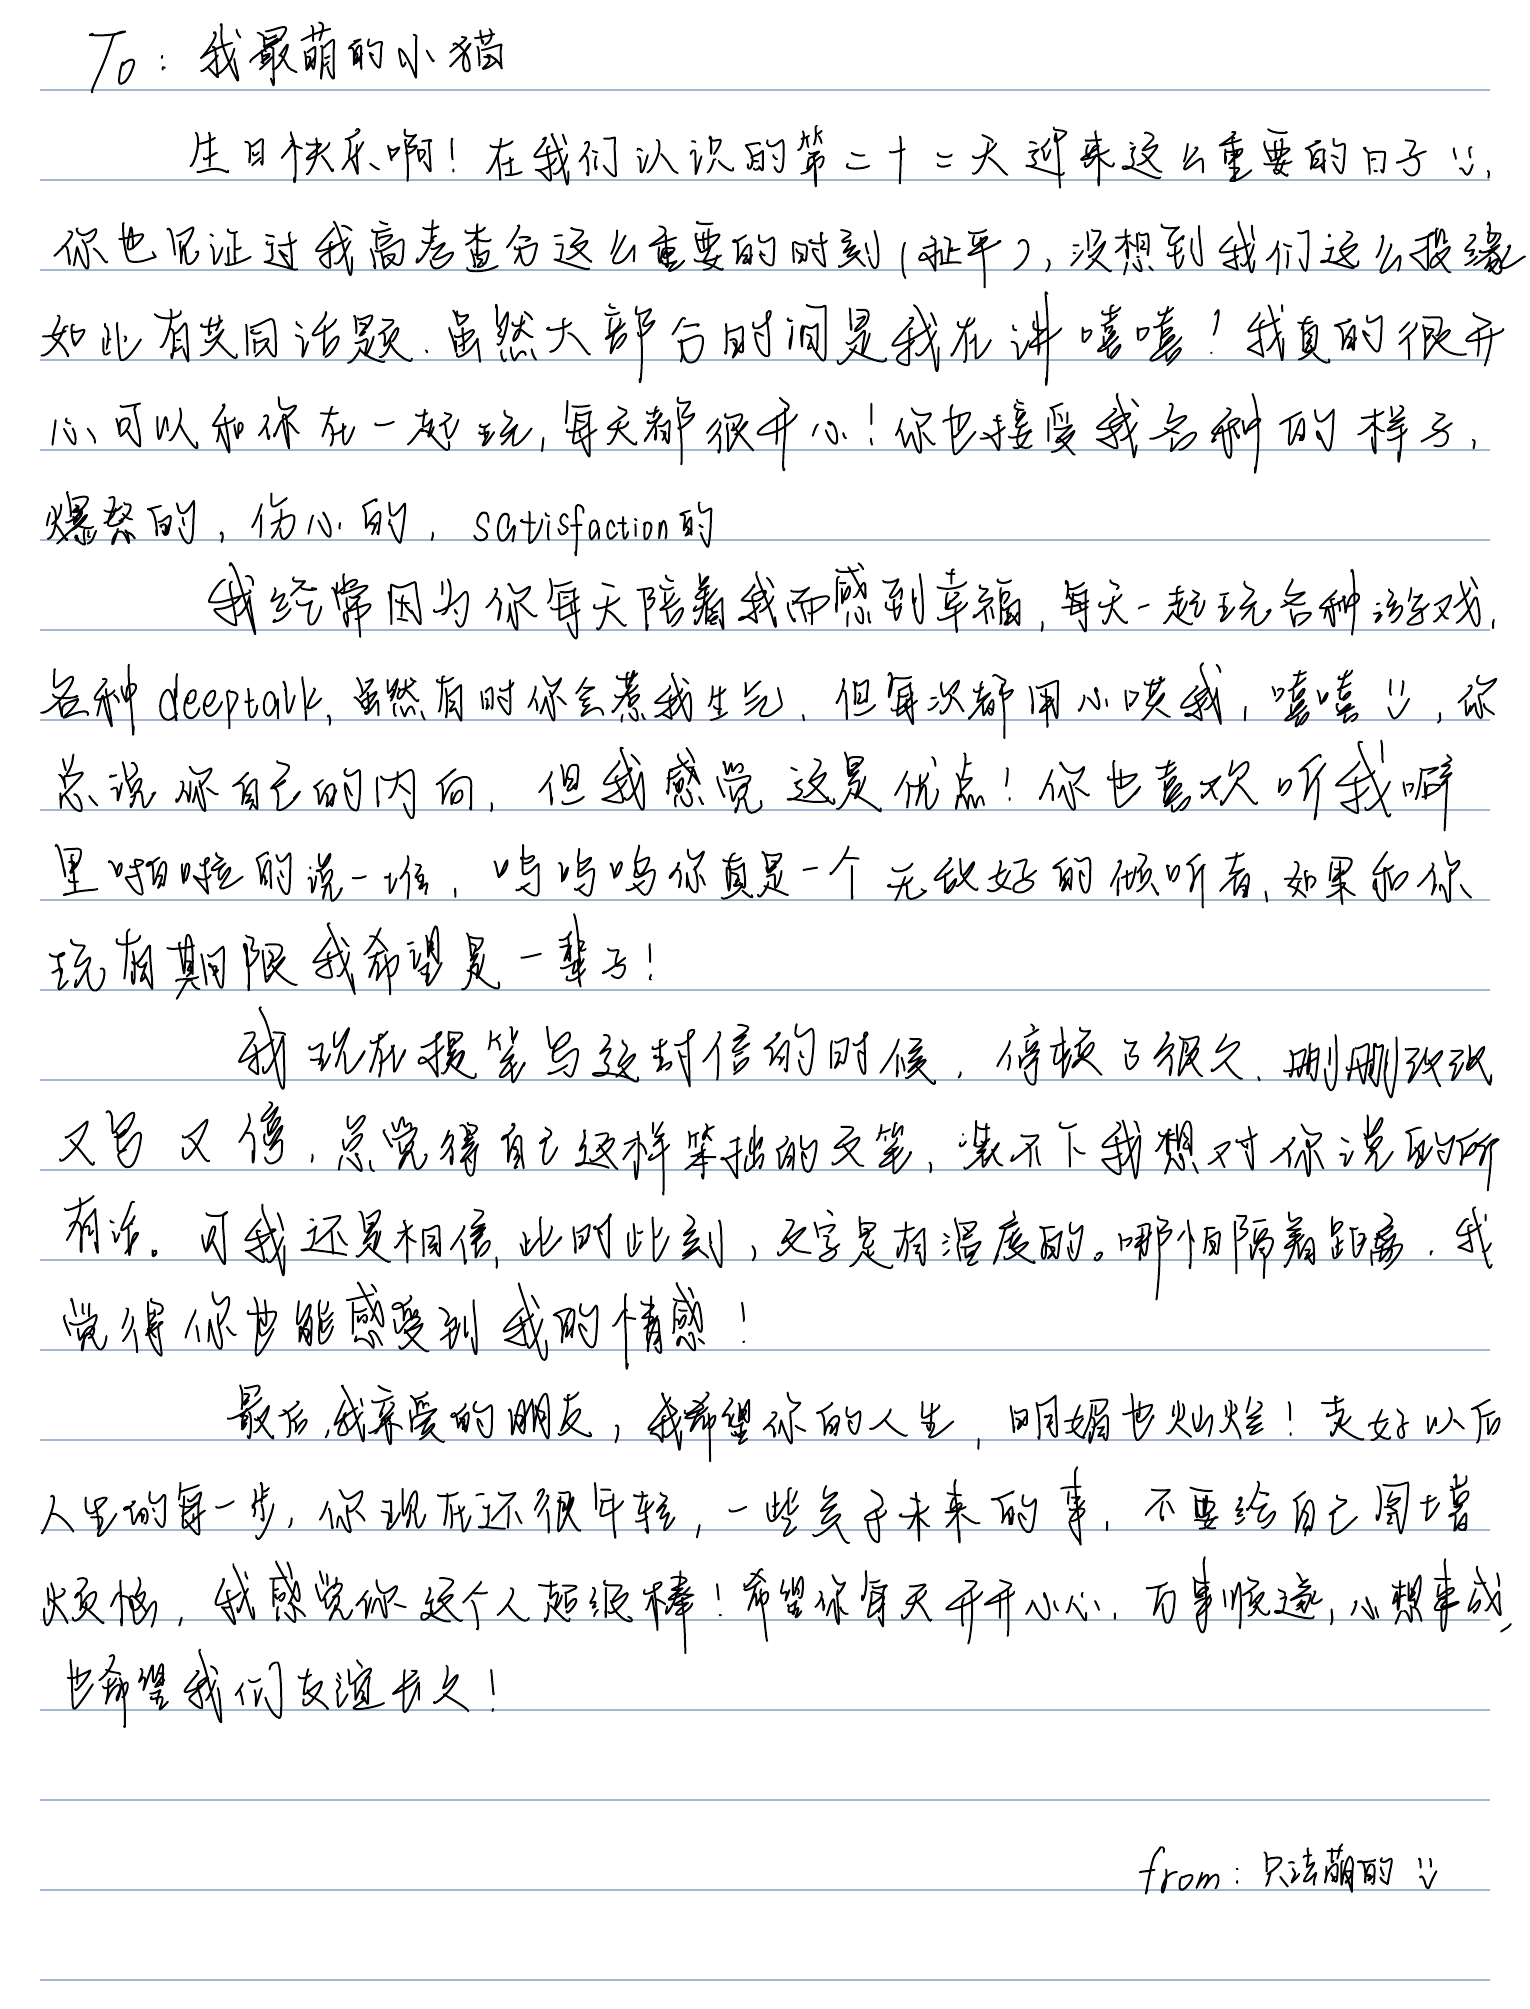 To：我最萌的小猫
生日快乐啊！在我们认识的第二十二天迎来这么重要的日子:)，
你也见证过我高考查分这么重要的时刻（扯平），没想到我们这么投缘
如此有共同话题，虽然大部分时间是我在讲嘻嘻！我真的很开
心可以和你在一起玩，每天都很开心！你也接受我各种的样子，
爆怒的，伤心的，satisfaction的
我经常因为你每天陪着我而感到幸福，每天一起玩各种游戏，
各种deeptalk，虽然有时你会惹我生气，但每次都用心哄我，嘻嘻:)，你
总说你自己的内向，但我感觉这是优点！你也喜欢听我噼
里啪啦的说一堆，呜呜呜你真是一个无敌好的倾听者，如果和你
玩有期限我希望是一辈子！
我现在提笔写这封信的时候，停顿了很久，删删改改
又写又停，总觉得自己这样笨拙的文笔，装不下我想对你说的所
有话。可我还是相信，此时此刻，文字是有温度的。哪怕隔着距离，我
觉得你也能感受到我的情感！
最后，我亲爱的朋友，我希望你的人生，明媚也灿烂！走好以后
人生的每一步，你现在还很年轻，一些关于未来的事，不要给自己图增
烦恼，我感觉你这个人超级棒！希望你每天开开心心，万事顺遂，心想事成，
也希望我们友谊长久！
from：萌的:)